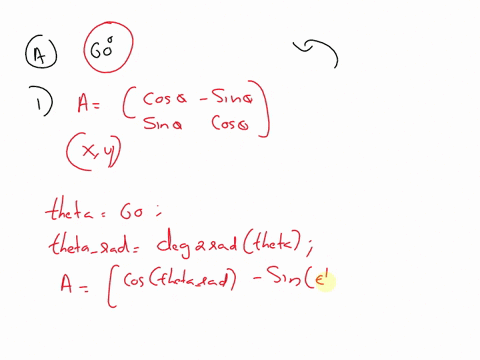 A 60°
1) A = [cosθ -Sinθ
Sinθ cosθ]
(x, y)
theta = 60 ;
theta_rad = deg2rad(theta) ;
A = [cos(theta_rad) -Sin(t